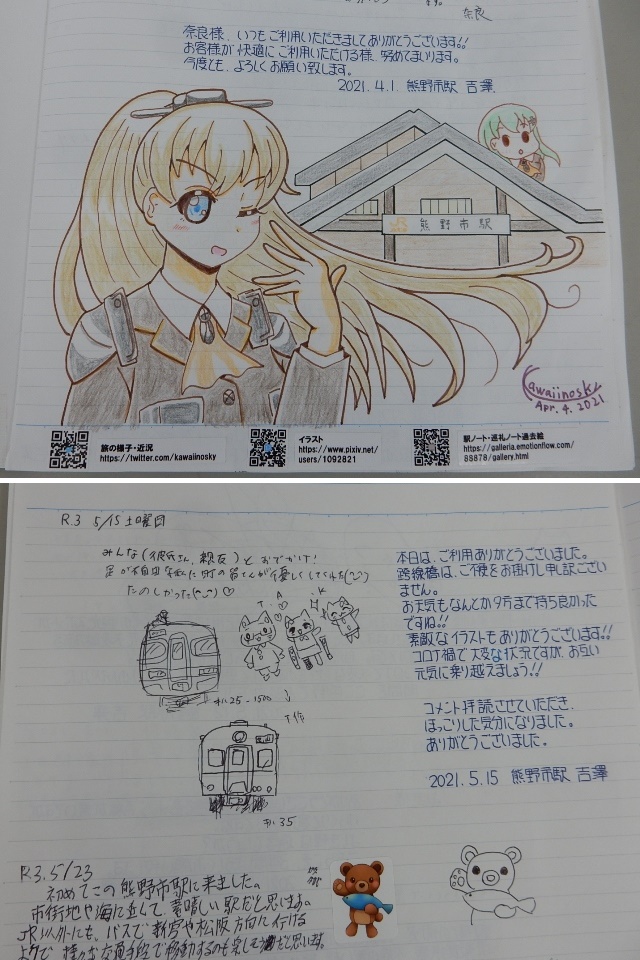 奈良
奈良様、いつもご利用いただきましてありがとうございます!!
お客様が快適にご利用いただける様、努めてまいります。
今度とも、よろしくお願い致します。
2021.4.1. 熊野市駅 吉澤
熊野市駅
Kawaiinosky
Apr. 4. 2021
旅の様子・近況
https://twitter.com/kawaiinosky
イラスト
https://www.pixiv.net/
users/1092821
駅ノート・巡礼ノート過去絵
https://galleria.emotionflow.com/
88878/gallery.html
R.3 5/15 土曜日
みんな(彼氏さん、親友)とおでかけ!
足が不自由な私に町の皆さんが優しくしてくれた
たのしかった
T. A K
キハ25-1500
T作
キハ35
本日は、ご利用ありがとうございました。
跨線橋は、ご不便をお掛けし申訳ござい
ません。
お天気もなんとか夕方まで持ち良かった
ですね!!
素敵なイラストもありがとうございます!!
コロナ禍で大変な状況ですが、お互い
元気に乗り越えましょう!!
コメント拝読させていただき、
ほっこりした気分になりました。
ありがとうございました。
2021.5.15 熊野市駅 吉澤
R3.5/23
初めてこの熊野市駅に来ました。
市街地や海に近くて、素晴しい駅だと思います。
JR以外にも、バスで新宮や松阪方向に行ける
ようで、様々な交通手段で移動するのも楽しそうだと思います。